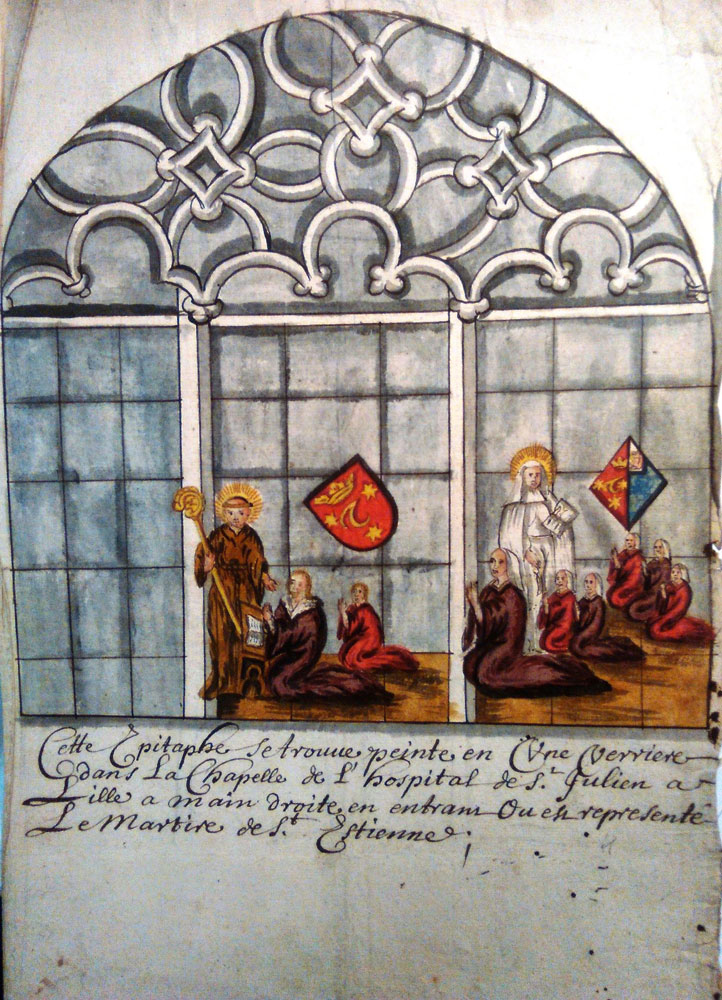 Cette Epitaphe se trouve peinte en Vne Verriere
dans La Chapelle de L'hospital de St. Julien a
Lille a main droite en entrant Ou est representé
Le Martire de St. Estienne.